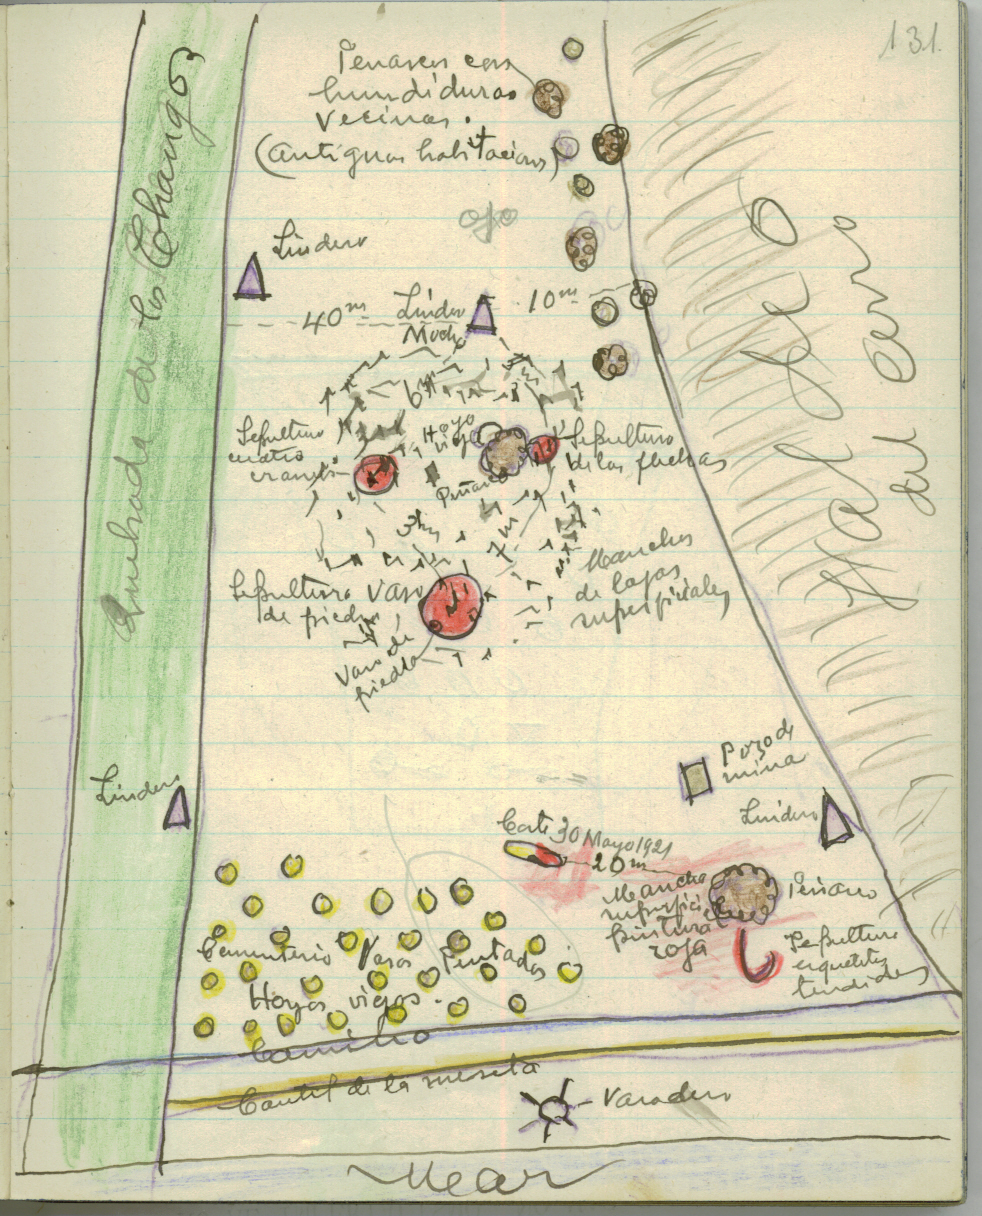 131.
Quebrada de los Changos
Peñascos con
hundiduras
vecinas.
(Antiguas habitaciones)
ojo
Lindero
40 m
Lindero
10 m
Falda
del Cerro
6 m
Hoyo
viejo
Sepultura
cuatro
Sepultura
de las flechas
Peñasco
3 m
7 m
Sepultura Vaso
de piedra
Vaso de
piedra
Manchas
de lajas
superficiales
Pozo de
mina
Lindero
Lindero
Corte 30 Mayo 1921
20 m
Mancha
superfici
pintura
roja
Peñasco
Sepultura
esqueletos
tendidos
Cementerio Vasos Pintados
Hoyos viejos.
Camino
Cantil de la meseta
Varadero
Mar